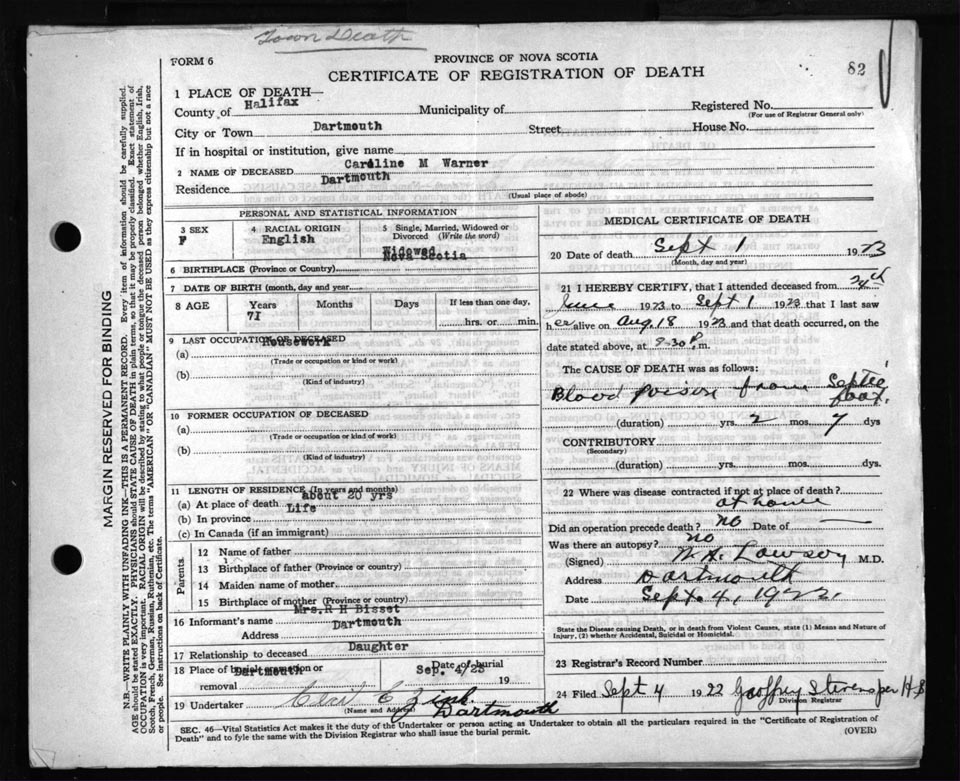 Town Death
FORM 6
PROVINCE OF NOVA SCOTIA
82
CERTIFICATE OF REGISTRATION OF DEATH
1 PLACE OF DEATH—
County of Halifax Municipality of Registered No.
(For use of Registrar General only)
City or Town Dartmouth Street House No.
If in hospital or institution, give name
2 NAME OF DECEASED Caroline M Warner
Residence Dartmouth
(Usual place of abode)
PERSONAL AND STATISTICAL INFORMATION
3 SEX F
4 RACIAL ORIGIN English
5 Single, Married, Widowed or Divorced (Write the word)
Widowed
Nova Scotia
6 BIRTHPLACE (Province or Country)
7 DATE OF BIRTH (month, day and year)
8 AGE Years Months Days If less than one day,
71
hrs. or min.
9 LAST OCCUPATION OF DECEASED
Housework
(a)
(Trade or occupation or kind or work)
(b)
(Kind of industry)
10 FORMER OCCUPATION OF DECEASED
(a)
(Trade or occupation or kind of work)
(b)
(Kind of industry)
11 LENGTH OF RESIDENCE (In years and months)
about 20 yrs
(a) At place of death
Life
(b) In province
(c) In Canada (if an immigrant)
Parents
12 Name of father
13 Birthplace of father (Province or country)
14 Maiden name of mother
15 Birthplace of mother (Province or country)
Mrs. R H Bisset
16 Informant's name
Dartmouth
Address
Daughter
17 Relationship to deceased
18 Place of burial, cremation or removal Dartmouth
Date of burial Sep. 4/23
19
19 Undertaker
(Name and Address)
Dartmouth
MEDICAL CERTIFICATE OF DEATH
20 Date of death Sept 1 1923
(Month, day and year)
21 I HEREBY CERTIFY, that I attended deceased from 24th
June 1923 to Sept 1 1923 that I last saw
her alive on Aug. 18 1923 and that death occurred, on the
date stated above, at 9-30 P.m.
The CAUSE OF DEATH was as follows:
Blood poison from Septic
foot.
(duration) yrs. 2 mos. 7 dys
CONTRIBUTORY
(Secondary)
(duration) yrs. mos. dys.
22 Where was disease contracted if not at place of death?
at home
Did an operation precede death? no Date of —
Was there an autopsy? no
(Signed) Lawson M.D.
Address Dartmouth
Date Sept. 4, 1922
State the Disease causing Death, or in death from Violent Causes, state (1) Means and Nature of
Injury, (2) whether Accidental, Suicidal or Homicidal.
23 Registrar's Record Number
24 Filed Sept 4 1922 Geoffrey Stevens per H.B
Division Registrar
SEC. 46—Vital Statistics Act makes it the duty of the Undertaker or person acting as Undertaker to obtain all the particulars required in the "Certificate of Registration of
Death" and to fyle the same with the Division Registrar who shall issue the burial permit.
(OVER)
MARGIN RESERVED FOR BINDING
N.B.—WRITE PLAINLY WITH UNFADING INK—THIS IS A PERMANENT RECORD. Every item of information should be carefully supplied.
AGE should be stated EXACTLY. PHYSICIANS should STATE CAUSE OF DEATH in plain terms, so that it may be properly classified. Exact statement of
OCCUPATION is very important. RACIAL ORIGIN will be described by stating to what people or tongue the deceased person belonged whether English, Irish,
Scotch, French, German, Russian, Ruthenian, etc. The terms "AMERICAN" or "CANADIAN" MUST NOT BE USED as they express citizenship but not a race
or people. See instructions on back of Certificate.